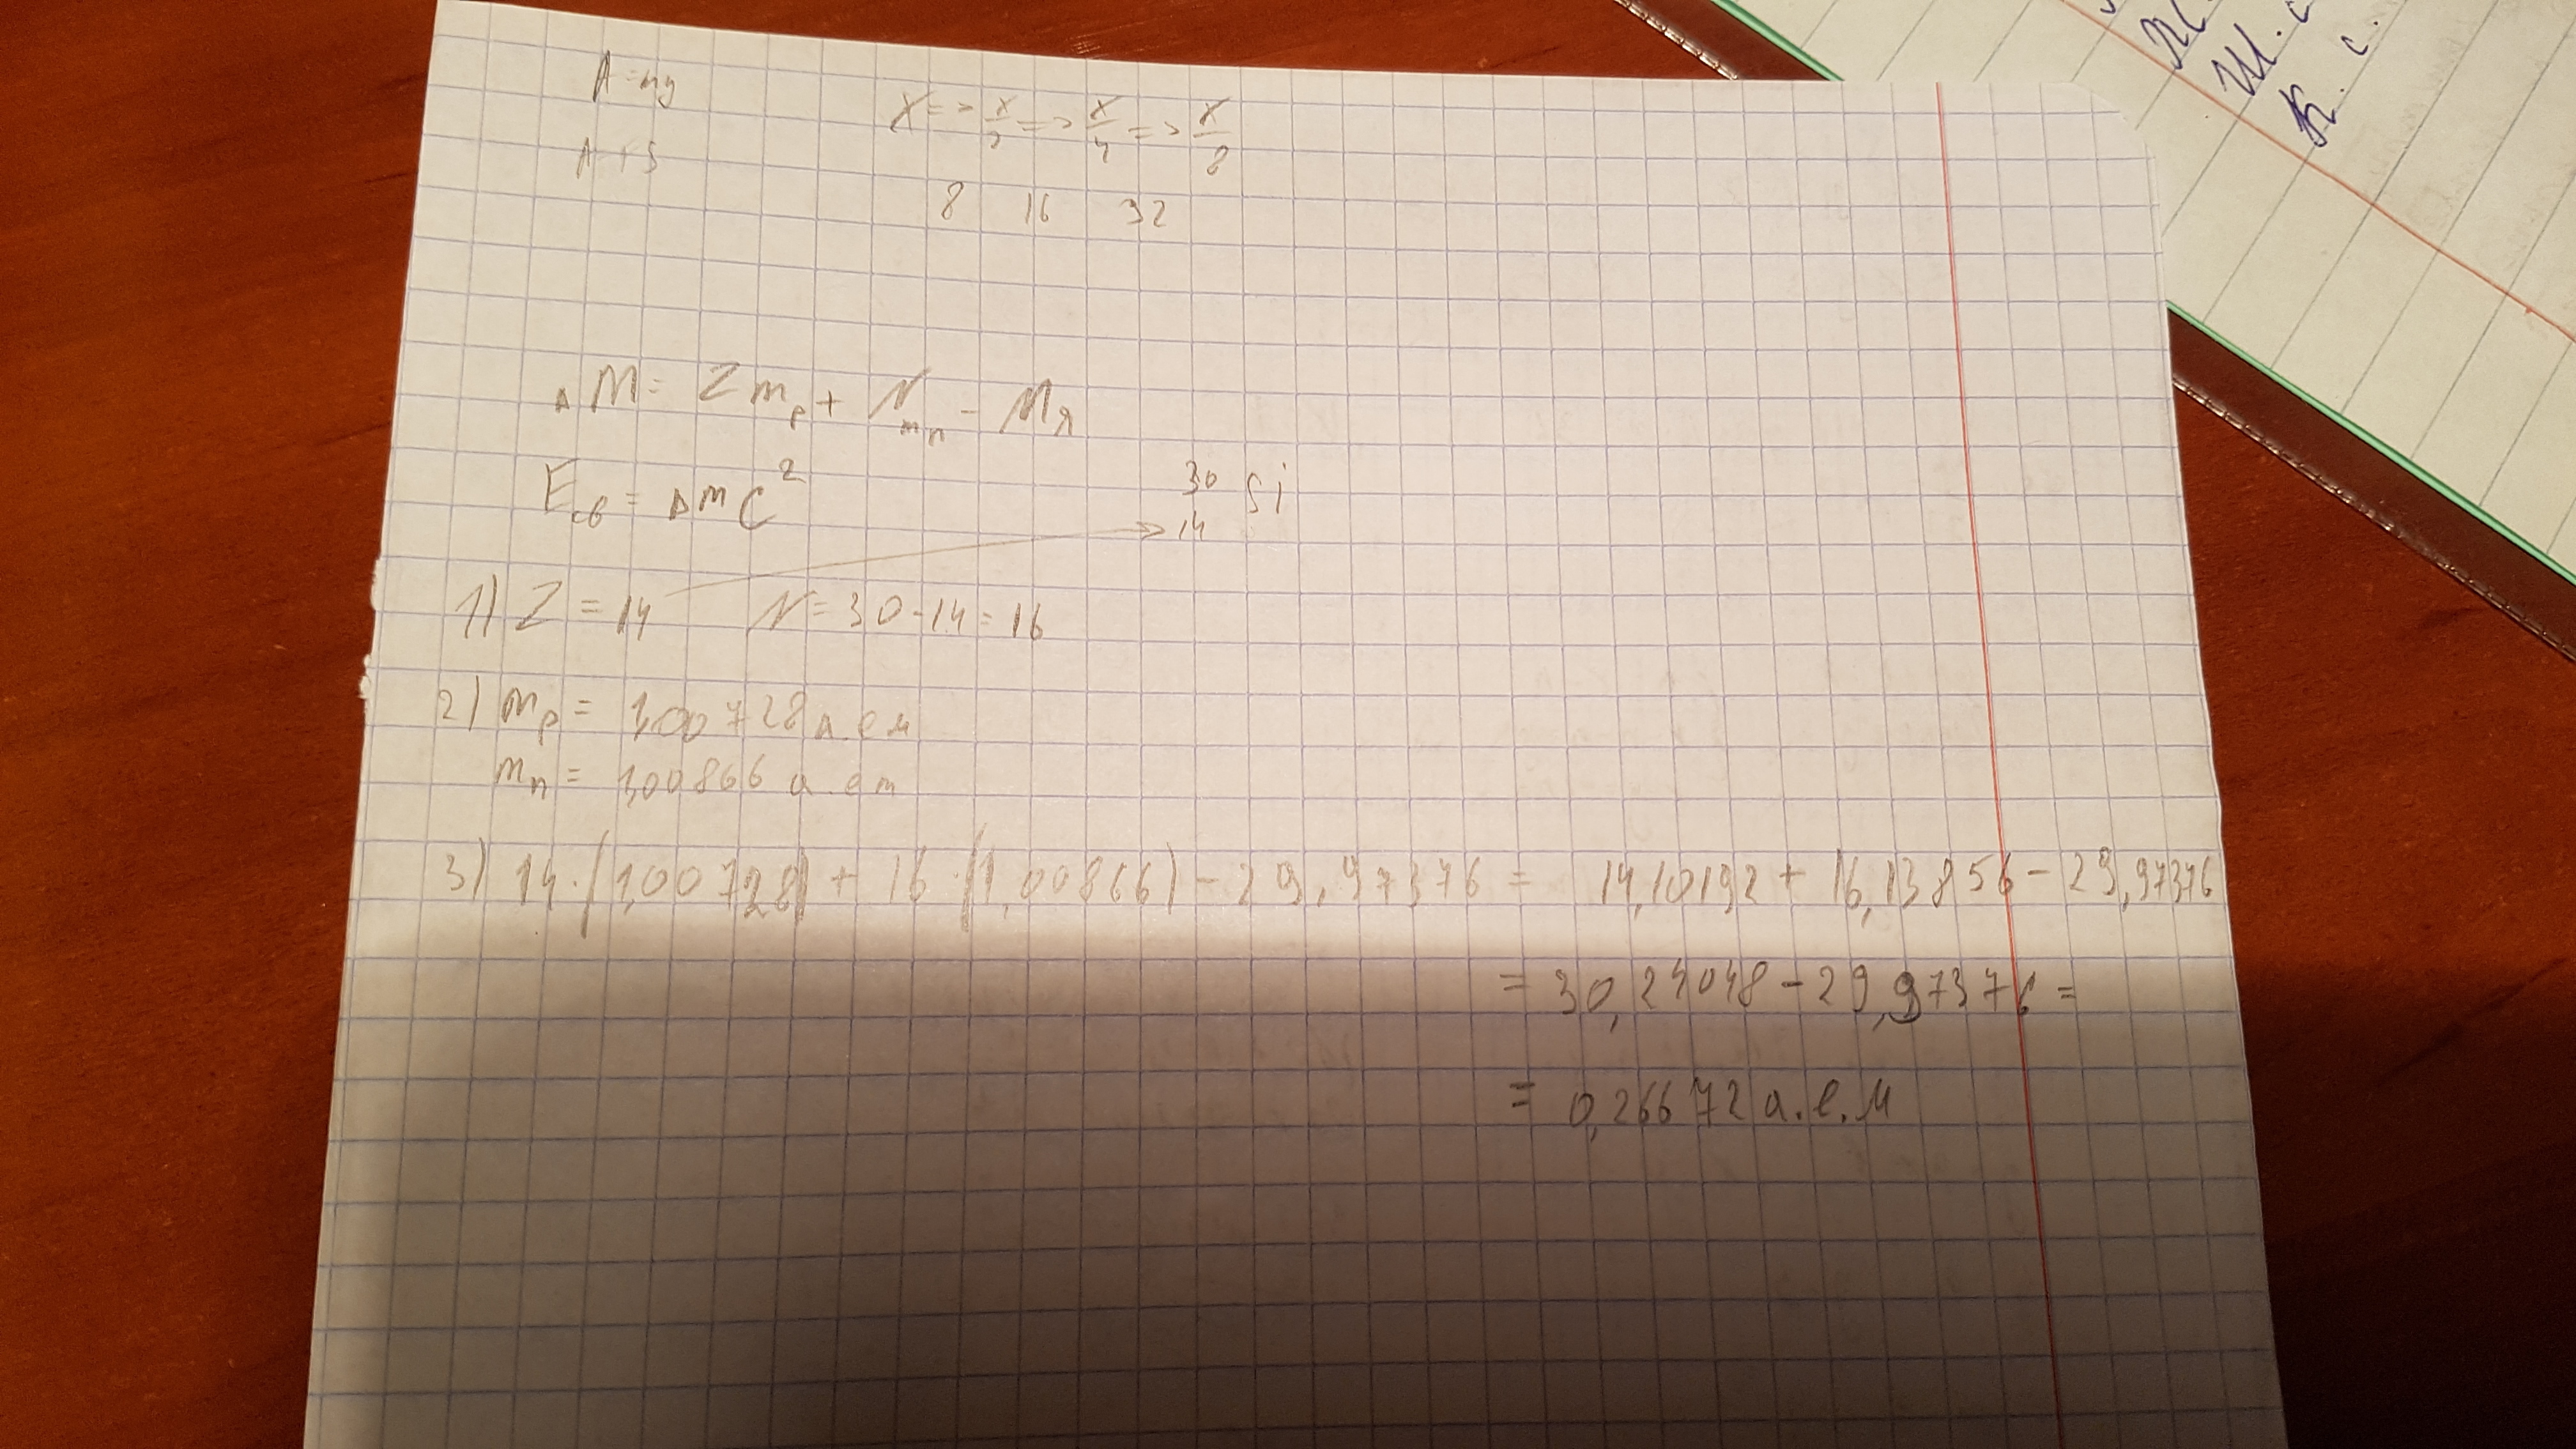 A = mg
X => x/2 => x/4 => x/8
A + S
8 16 32
ΔM = Zmp + Nmn - Mя
Eсв = Δmc²
30 Si
14
1) Z = 14 N = 30-14 = 16
2) mp = 1,00728 а.ем
mn = 1,00866 а.ем
3) 14·(1,00728) + 16·(1,00866) - 29,97376 = 14,10192 + 16,13856 - 29,97376
= 30,24048 - 29,97376 =
= 0,26672 а.е.м
Ш. с
К. с.